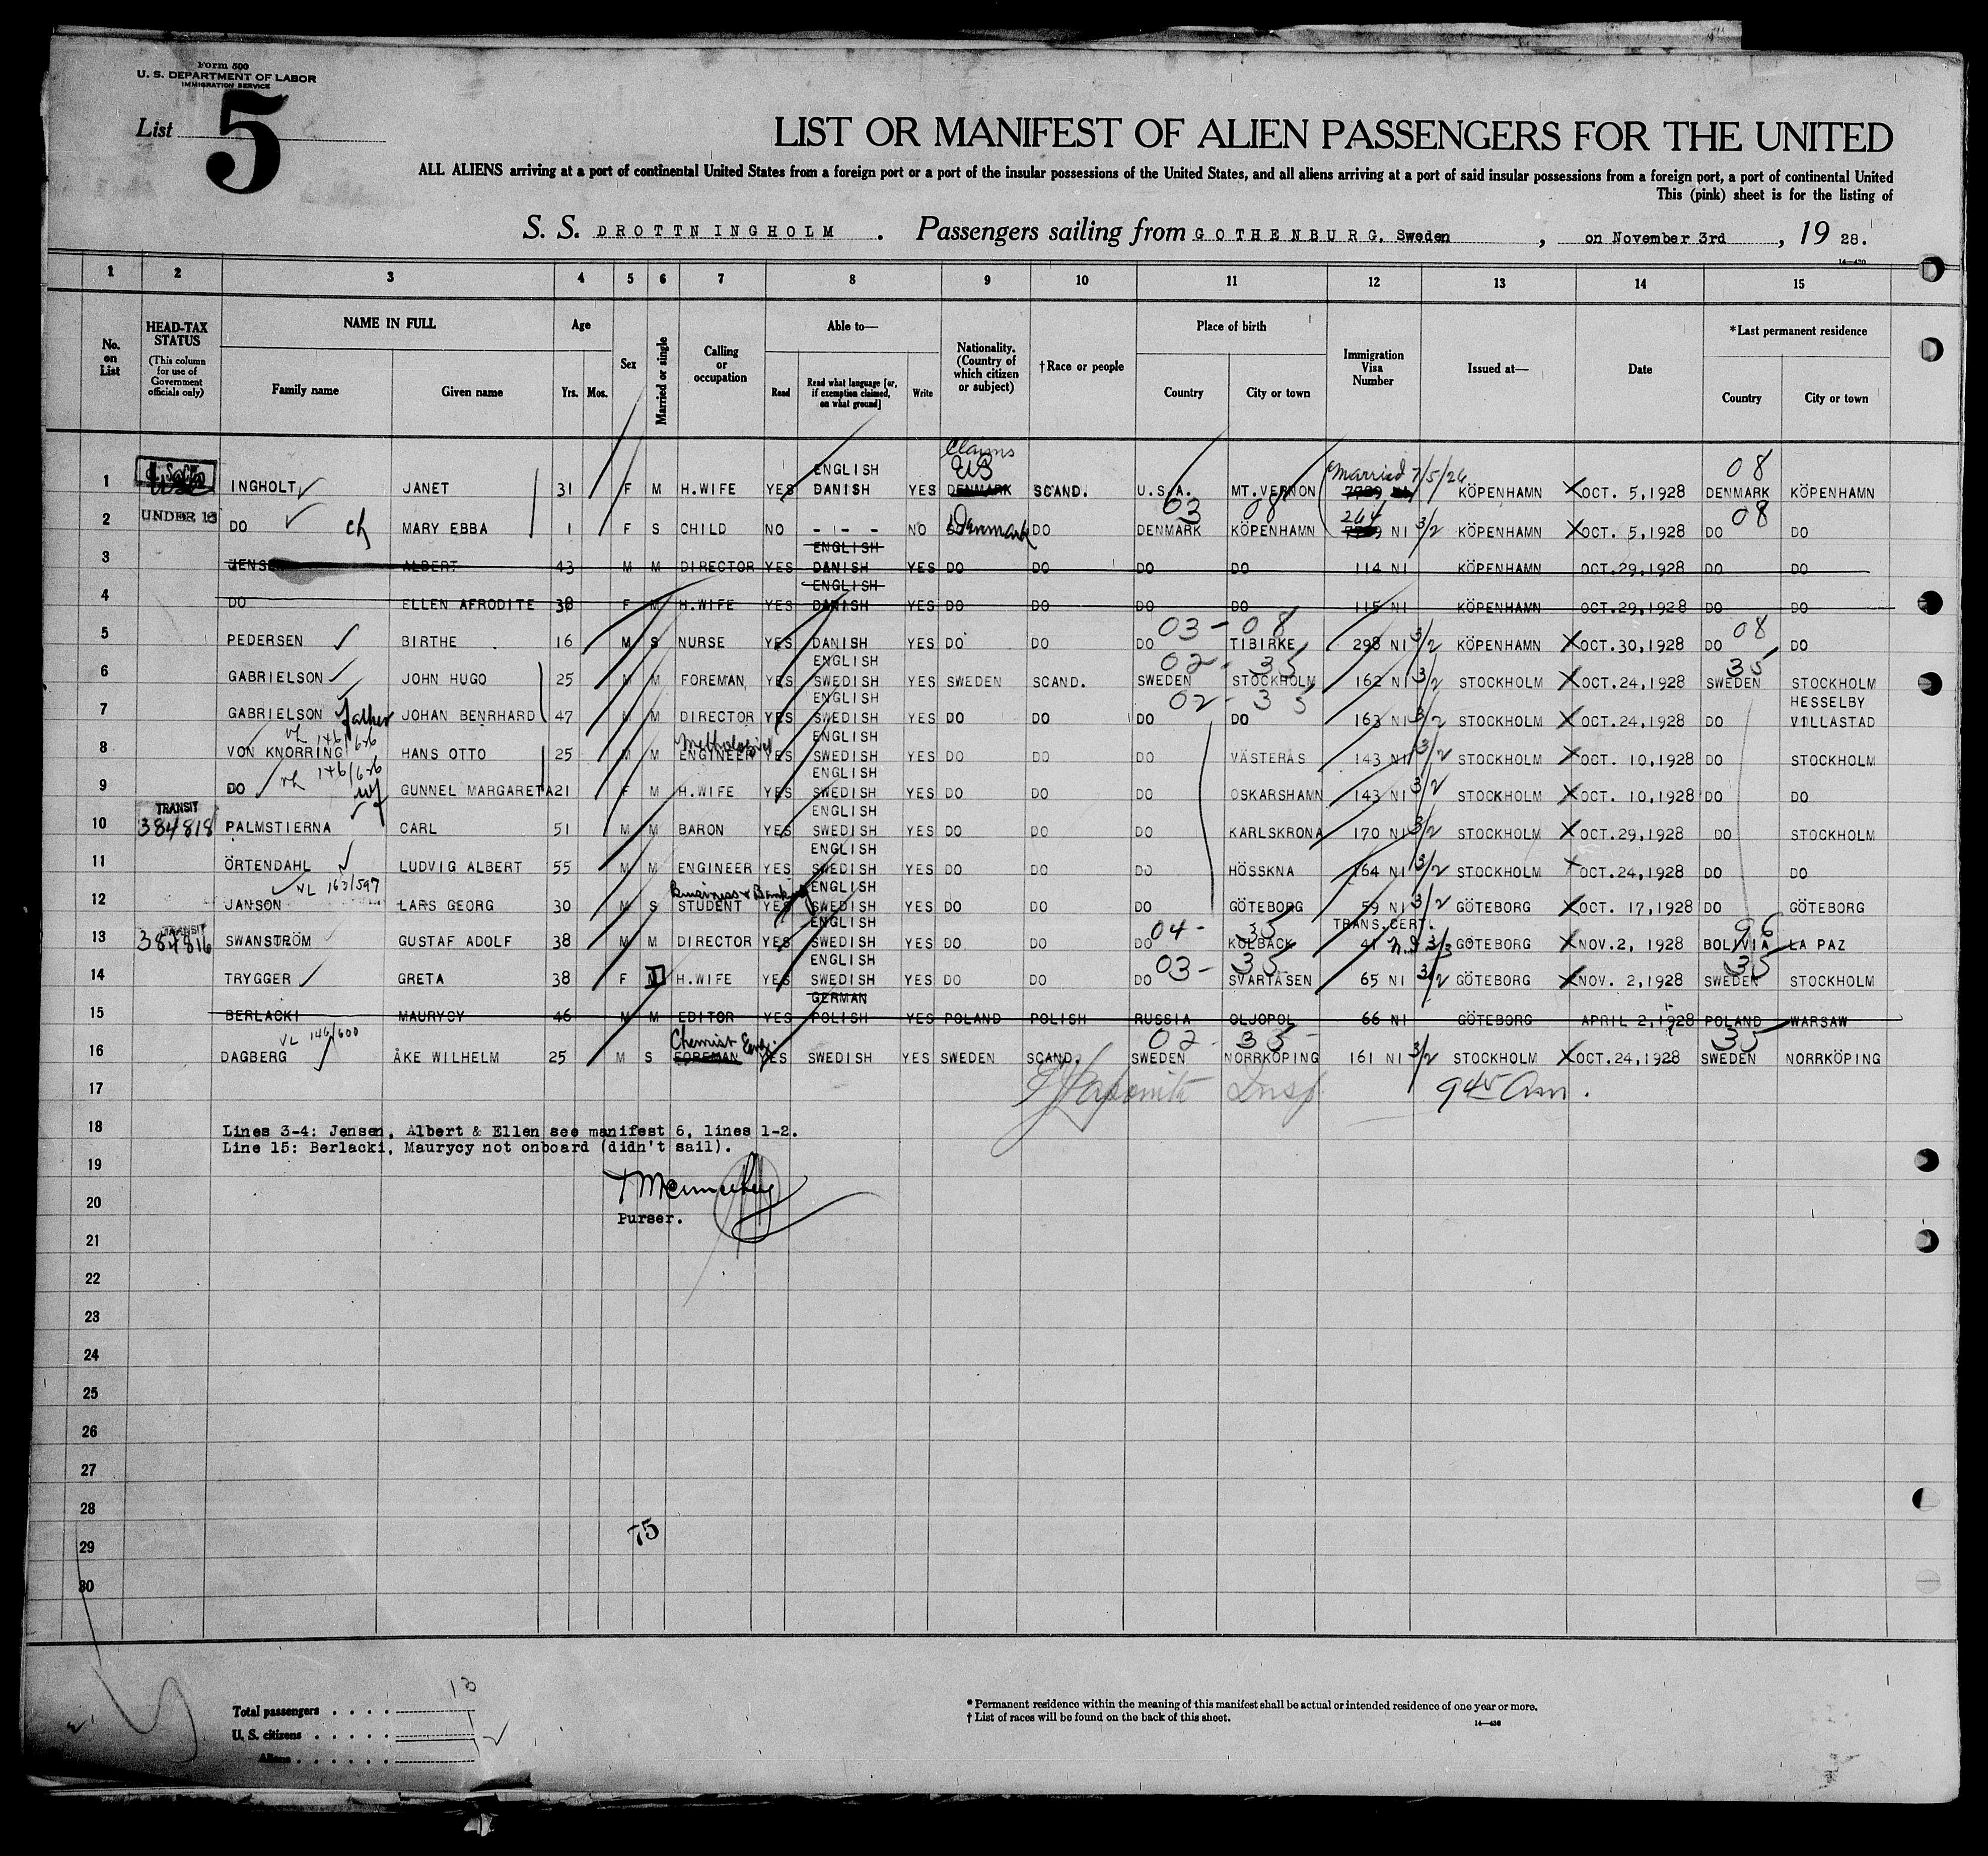 Form 500
U. S. DEPARTMENT OF LABOR
IMMIGRATION SERVICE
List 5
LIST OR MANIFEST OF ALIEN PASSENGERS FOR THE UNITED
ALL ALIENS arriving at a port of continental United States from a foreign port or a port of the insular possessions of the United States, and all aliens arriving at a port of said insular possessions from a foreign port, a port of continental United
This (pink) sheet is for the listing of
S. S. DROTTNINGHOLM . Passengers sailing from GOTHENBURG, Sweden , on November 3rd , 19 28.
14-430
1 2 3 4 5 6 7 8 9 10 11 12 13 14 15
No. on List
HEAD-TAX STATUS
(This column for use of Government officials only)
NAME IN FULL
Family name Given name
Age
Yrs. Mos.
Sex
Married or single
Calling or occupation
Able to—
Read Read what language [or, if exemption claimed, on what ground] Write
Nationality. (Country of which citizen or subject)
†Race or people
Place of birth
Country City or town
Immigration Visa Number
Issued at—
Date
*Last permanent residence
Country City or town
Claims
ENGLISH US Married 7/5/26 08
1 INGHOLT JANET 31 F M H.WIFE YES DANISH YES DENMARK SCAND. U.S.A. MT.VERNON KÖPENHAMN OCT. 5,1928 DENMARK KÖPENHAMN
03 08 264 08
2 UNDER 16 DO ch MARY EBBA 1 F S CHILD NO - - - NO Denmark DO DENMARK KÖPENHAMN NI 3/2 KÖPENHAMN OCT. 5,1928 DO DO
ENGLISH
3 JENSEN ALBERT 43 M M DIRECTOR YES DANISH YES DO DO DO DO 114 NI KÖPENHAMN OCT.29,1928 DO DO
ENGLISH
4 DO ELLEN AFRODITE 38 F M H.WIFE YES DANISH YES DO DO DO DO 115 NI KÖPENHAMN OCT.29,1928 DO DO
03-08 08
5 PEDERSEN BIRTHE 16 M S NURSE YES DANISH YES DO DO DO TIBIRKE 298 NI 3/2 KÖPENHAMN OCT.30,1928 DO DO
ENGLISH 02-35 35
6 GABRIELSON JOHN HUGO 25 M M FOREMAN YES SWEDISH YES SWEDEN SCAND. SWEDEN STOCKHOLM 162 NI 3/2 STOCKHOLM OCT.24,1928 SWEDEN STOCKHOLM
ENGLISH 02-35 HESSELBY
7 GABRIELSON Father JOHAN BENRHARD 47 M M DIRECTOR YES SWEDISH YES DO DO DO DO 163 NI 3/2 STOCKHOLM OCT.24,1928 DO VILLASTAD
VL 146/626 ENGLISH
8 VON KNORRING HANS OTTO 25 M M ENGINEER YES SWEDISH YES DO DO DO VÄSTERÅS 143 NI 3/2 STOCKHOLM OCT. 10,1928 DO STOCKHOLM
VL 146/626 ENGLISH
9 DO wf GUNNEL MARGARETA 21 F M H.WIFE YES SWEDISH YES DO DO DO OSKARSHAMN 143 NI 3/2 STOCKHOLM OCT. 10,1928 DO DO
TRANSIT ENGLISH
10 384818 PALMSTIERNA CARL 51 M M BARON YES SWEDISH YES DO DO DO KARLSKRONA 170 NI 3/2 STOCKHOLM OCT.29,1928 DO STOCKHOLM
ENGLISH
11 ÖRTENDAHL LUDVIG ALBERT 55 M M ENGINEER YES SWEDISH YES DO DO DO HÖSSKNA 164 NI 3/2 STOCKHOLM OCT.24,1928 DO DO
VL 163/597 Business & Banking ENGLISH
12 JANSON LARS GEORG 30 M S STUDENT YES SWEDISH YES DO DO DO GÖTEBORG 59 NI 3/2 GÖTEBORG OCT. 17,1928 DO GÖTEBORG
TRANSIT ENGLISH 04-35 TRANS.CERT. 96
13 384816 SWANSTRÖM GUSTAF ADOLF 38 M M DIRECTOR YES SWEDISH YES DO DO DO KOLBÄCK 41 N.I. 3/3 GÖTEBORG NOV.2, 1928 BOLIVIA LA PAZ
ENGLISH 03-35 35
14 TRYGGER GRETA 38 F M H.WIFE YES SWEDISH YES DO DO DO SVARTÅSEN 65 NI 3/2 GÖTEBORG NOV. 2,1928 SWEDEN STOCKHOLM
GERMAN
15 BERLACKI MAURYCY 46 M M EDITOR YES POLISH YES POLAND POLISH RUSSIA OLJOPOL 66 NI GÖTEBORG APRIL 2,1928 POLAND WARSAW
VL 146/600 Chemist Eng. 02-35 35
16 DAGBERG ÅKE WILHELM 25 M S FOREMAN YES SWEDISH YES SWEDEN SCAND. SWEDEN NORRKÖPING 161 NI 3/2 STOCKHOLM OCT.24,1928 SWEDEN NORRKÖPING
17 Insp. 945 Am.
18 Lines 3-4: Jensen, Albert & Ellen see manifest 6, lines 1-2.
Line 15: Berlacki, Maurycy not onboard (didn't sail).
19
20 Purser.
21
22
23
24
25
26
27
28
29 75
30
Total passengers 13
U. S. citizens 1
Aliens
* Permanent residence within the meaning of this manifest shall be actual or intended residence of one year or more.
† List of races will be found on the back of this sheet.
14-430